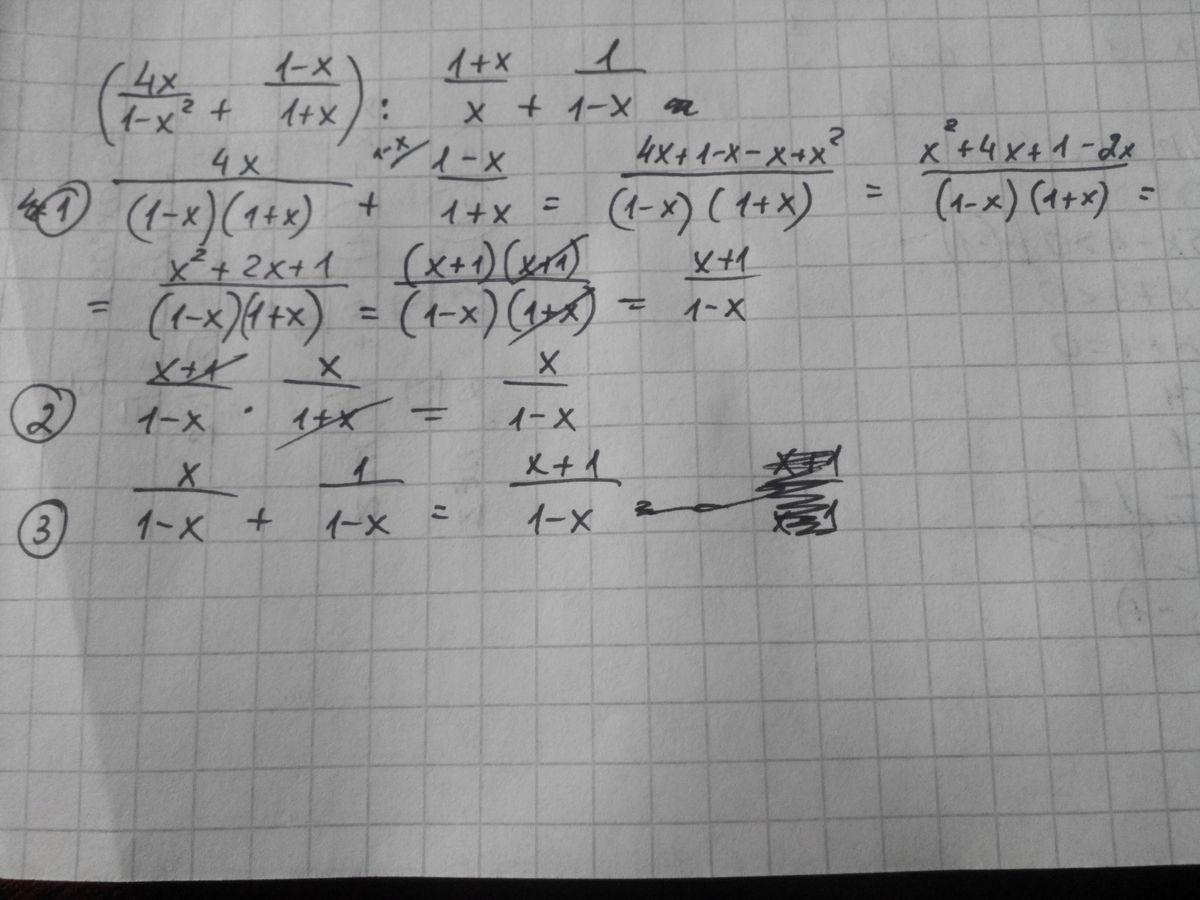 (4x/(1-x²) + (1-x)/(1+x)) : (1+x)/x + 1/(1-x)
① 4x/((1-x)(1+x)) + 1-x/ (1-x)/(1+x) = (4x+1-x-x+x²)/((1-x)(1+x)) = (x²+4x+1-2x)/((1-x)(1+x)) =
= (x²+2x+1)/((1-x)(1+x)) = ((x+1)(x+1))/((1-x)(1+x)) = (x+1)/(1-x)
② (x+1)/(1-x) · x/(1+x) = x/(1-x)
③ x/(1-x) + 1/(1-x) = (x+1)/(1-x)